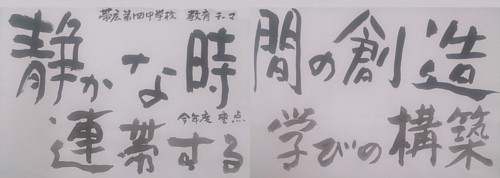 帯広第四中学校 教育テーマ
静かな時間の創造
今年度 重点
連帯する学びの構築